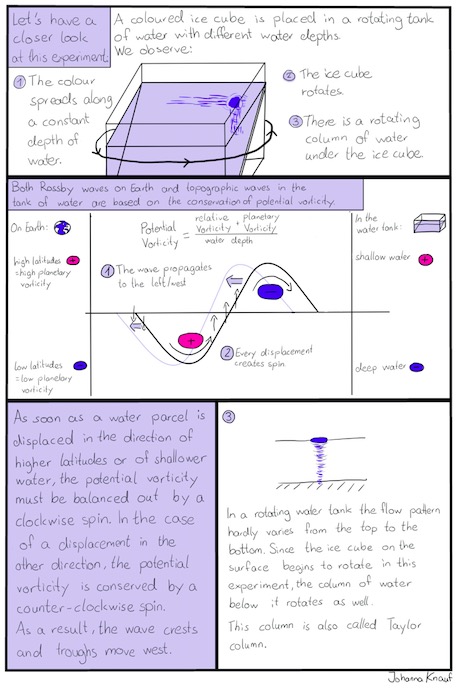 Let's have a
closer look
at this experiment
A coloured ice cube is placed in a rotating tank
of water with different water depths.
We observe:
① The colour
spreads along
a constant
depth of
water.
② The ice cube
rotates.
③ There is a rotating
column of water
under the ice cube.
Both Rossby waves on Earth and topographic waves in the
tank of water are based on the conservation of potential vorticity.
On Earth:
high latitudes +
= high planetary
vorticity
low latitudes -
= low planetary
vorticity
Potential Vorticity = (relative Vorticity + planetary Vorticity) / water depth
① The wave propagates
to the left/west
-
+
② Every displacement
creates spin.
In the
water tank:
shallow water +
deep water -
As soon as a water parcel is
displaced in the direction of
higher latitudes or of shallower
water, the potential vorticity
must be balanced out by a
clockwise spin. In the case
of a displacement in the
other direction, the potential
vorticity is conserved by a
counter-clockwise spin.
As a result, the wave crests
and troughs move west.
③
In a rotating water tank the flow pattern
hardly varies from the top to the
bottom. Since the ice cube on the
surface begins to rotate in this
experiment, the column of water
below it rotates as well.
This column is also called Taylor
column.
Johanna Knauf